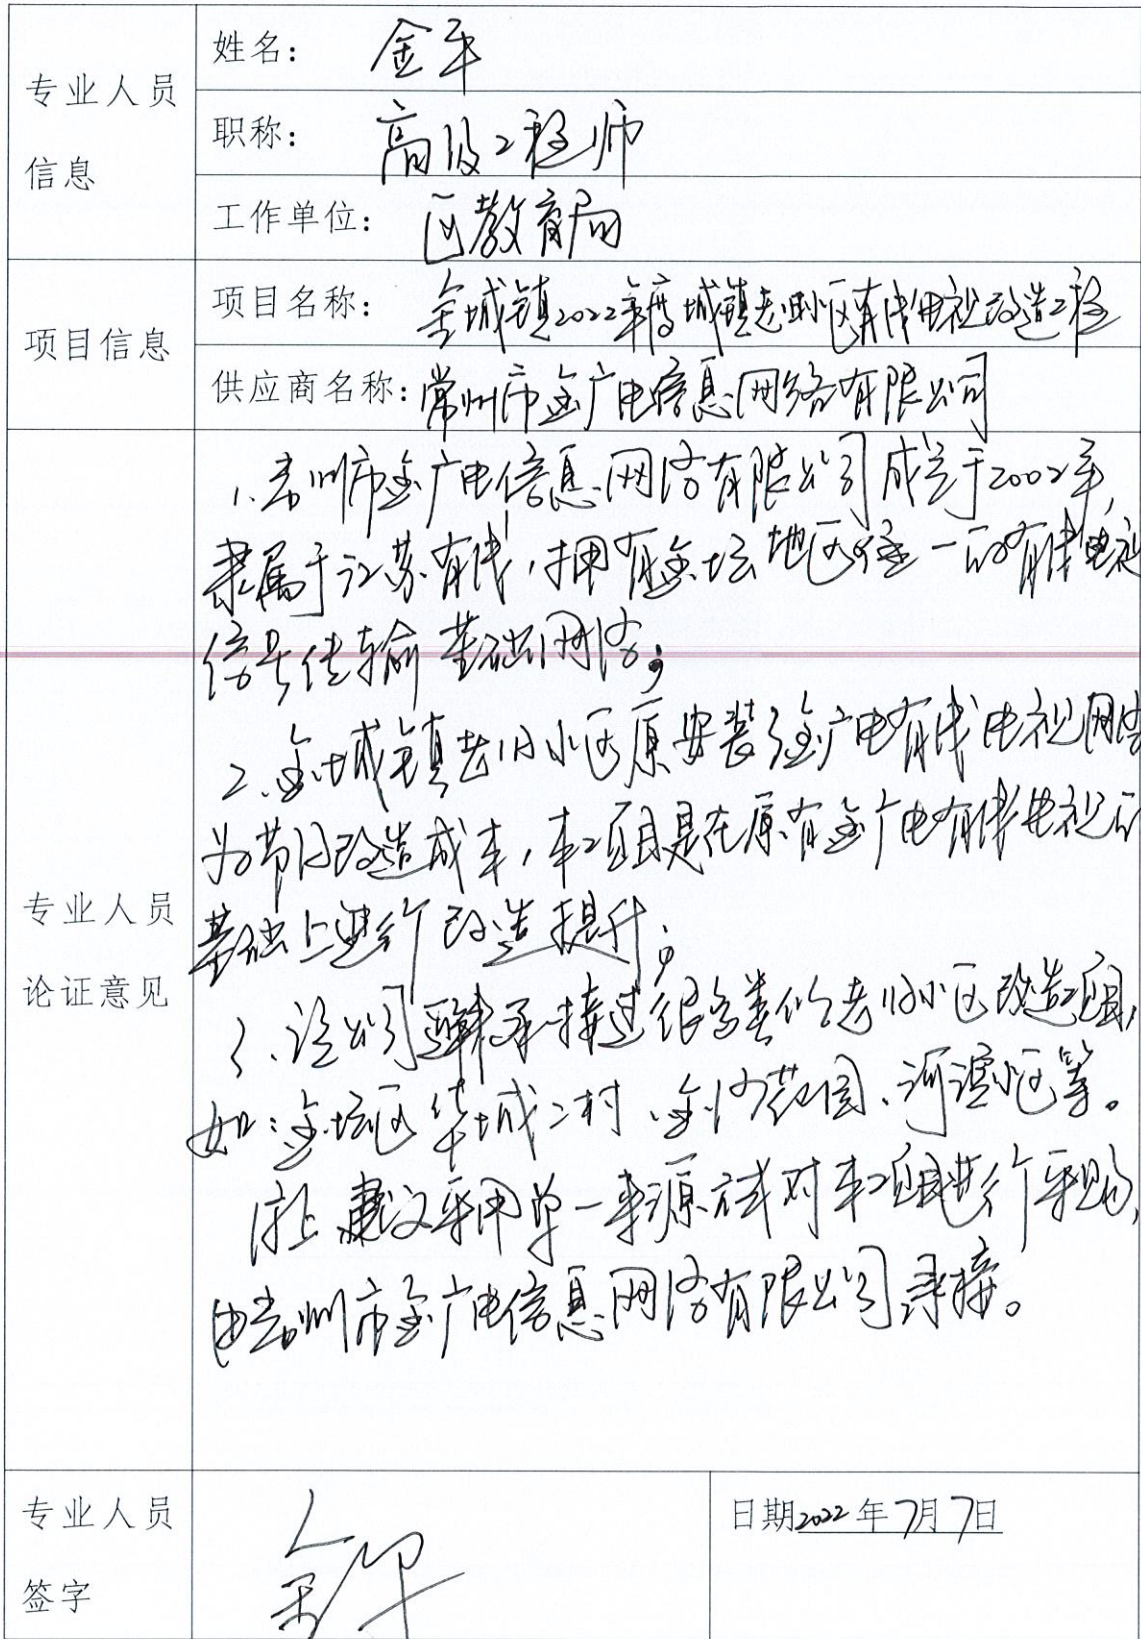 专业人员
信息
姓名: 金平
职称: 高级工程师
工作单位: 区教育局
项目信息
项目名称: 金城镇2022年度城镇老旧小区有线电视改造工程
供应商名称: 常州市金广电信息网络有限公司
专业人员
论证意见
1、常州市金广电信息网络有限公司成立于2002年,
隶属于江苏有线,拥有金坛地区唯一的有线电视
信号传输基础网络;
2、金城镇老旧小区原安装了金广电有线电视网络
为节约改造成本,本项目是在原有金广电有线电视的
基础上进行改造提升;
3、该公司承接过很多类似老旧小区改造项目,
如:金坛区华城二村、金沙花园、河滨小区等。
综上建议采用单一来源方式对本项目进行采购,
由常州市金广电信息网络有限公司承接。
专业人员
签字
金平
日期2022年7月7日